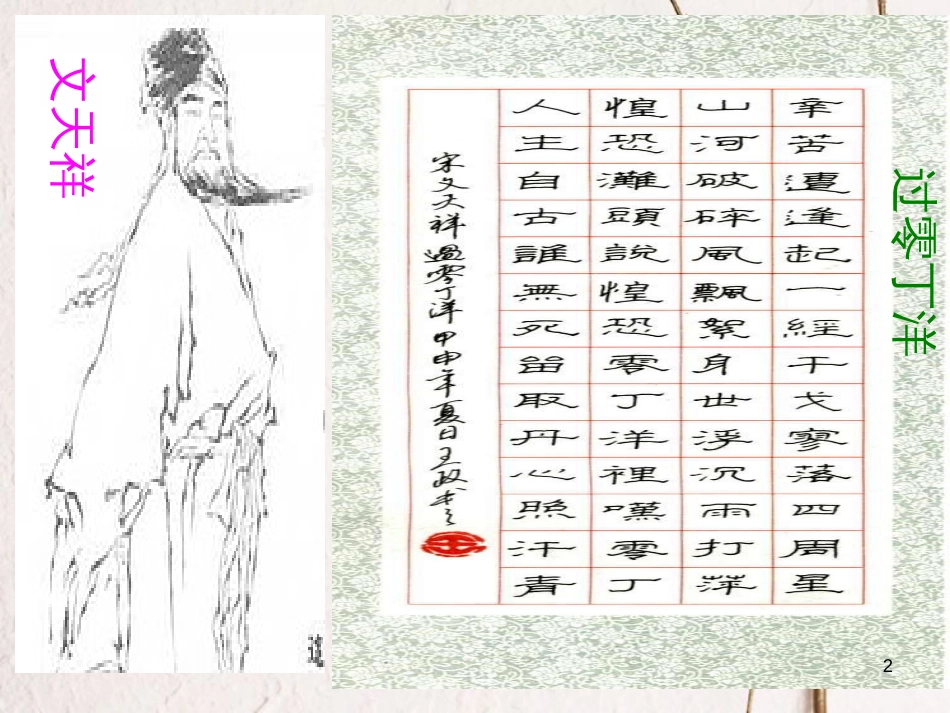 文天祥
过零丁洋
辛苦遭逢起一經干戈寥落四周星
山河破碎風飄絮身世浮沉雨打萍
惶恐灘頭說惶恐零丁洋裡嘆零丁
人生自古誰無死留取丹心照汗青
宋文天祥過零丁洋甲申年夏日王政
2